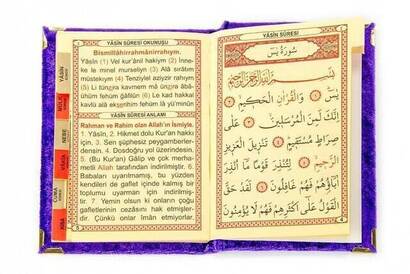 YÂSÎN SÛRESİ OKUNUŞU
Bismillâhirrahmânirrahıym.
Yâsîn (1) Vel kur'ânil hakiym (2) İnne-
ke le minel murseliyn (3) Alâ sırâtım
müstekıym (4) Tenziylel aziyzir rahıym
(5) Li tünzira kavmem mâ ünzira âbâ-
ühüm fehüm ğâfilûn (6) Le kad hakkal
kavlü alâ ekserihim fehüm lâ yü'minûn
YÂSÎN SÛRESİ ANLAMI
Rahman ve Rahim olan Allah'ın ismiyle.
1. Yâsîn, 2. Hikmet dolu Kur'an hakkı
için, 3. Sen şüphesiz peygamberler-
densin. 4. Dosdoğru yol üzerindesin.
5. (Bu Kur'an) Gâlip ve çok merha-
metli Allah tarafından indirilmiştir. 6.
Babaları uyarılmamış, bu yüzden
kendileri de gaflet içinde kalmış bir
toplumu uyarman için indirilmiş-
tir. 7 Yemin olsun ki onların çoğu
gafletlerinin cezâsını hak etmişler-
dir. Çünkü onlar îmân etmiyorlar.
YÂSÎN
MÜLK
NEBE
CUMA
DUA
سُورَةُ يٰسٓ
بِسْمِ اللهِ الرَّحْمٰنِ الرَّحِيمِ
يٰسٓ ۝ وَالْقُرْاٰنِ الْحَكِيمِ ۝
اِنَّكَ لَمِنَ الْمُرْسَلِينَ ۝ عَلٰى
صِرَاطٍ مُسْتَقِيمٍ ۝ تَنْزِيلَ الْعَزِيزِ
الرَّحِيمِ ۝ لِتُنْذِرَ قَوْمًا مَٓا اُنْذِرَ
اٰبَٓاؤُهُمْ فَهُمْ غَافِلُونَ ۝ لَقَدْ حَقَّ
الْقَوْلُ عَلٰٓى اَكْثَرِهِمْ فَهُمْ لَا يُؤْمِنُونَ